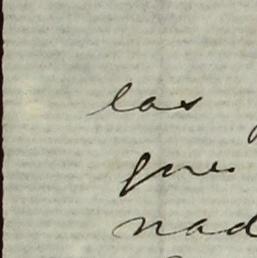 las
que
nad